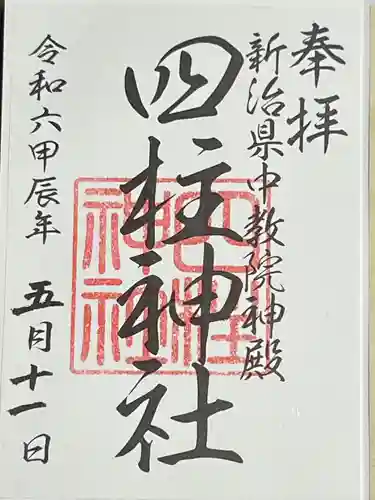 奉拝
新治県中教院神殿
四柱神社
令和六甲辰年 五月十一日
四柱神社